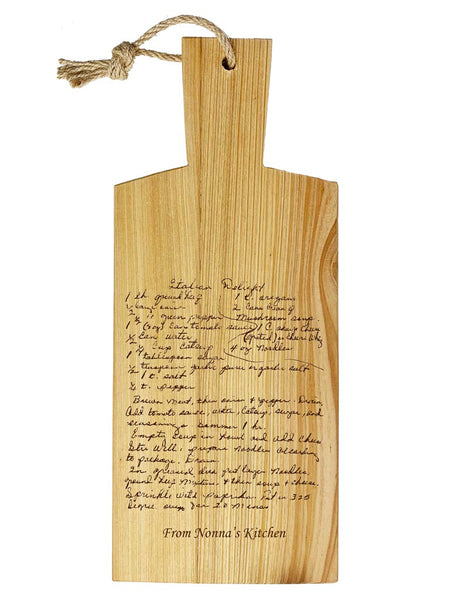 Italian Delight
1 lb. ground beef 1 t. oregano
1 large onion 2 cans cream of
½ green pepper Mushroom soup
1 can tomato sauce 1 C. sharp cheese
½ can water (grated)
¼ cup catsup 4 oz Noodles
1 tablespoon sugar
½ teaspoon garlic or garlic salt
1 t. salt
¼ t. pepper
Brown meat, then onion & pepper. Drain
Add tomato sauce, water, catsup, sugar, and
seasonings simmer 1 hr.
Empty soup in bowl and add cheese
Stir Well; prepare Noodles according
to package. Drain
In greased dish put layer Noodles,
ground beef mixture, & then soup & cheese.
Sprinkle with paprika. Put in 325
Degree oven for 20 Minutes
From Nonna's Kitchen